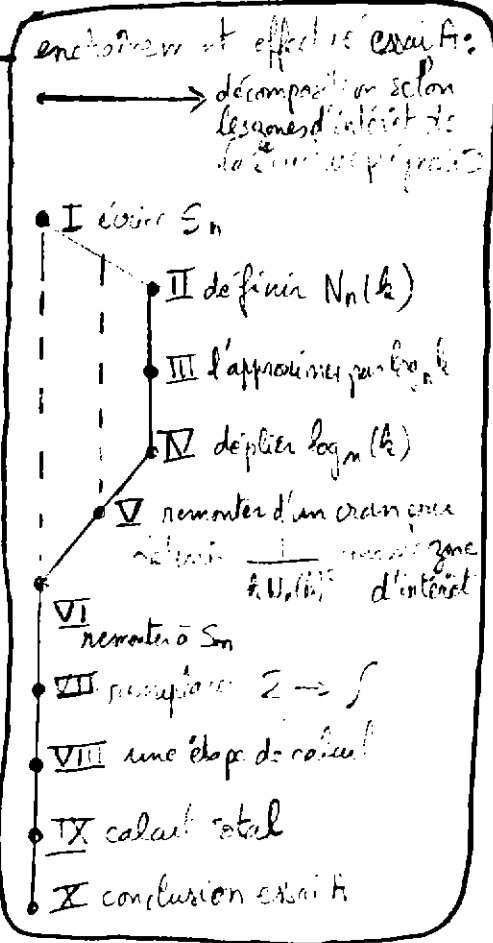 enchaînement effectué essai A:
décomposition selon
les zones d'intérêt de
I écrire Sₙ
II définir Nₙ(k)
III l'approximer par logₙ k
IV déplier logₙ(k)
V remonter d'un cran pour
obtenir 1/(k Nₙ(k)) zone
d'intérêt
VI
remonter à Sₙ
VII remplacer Σ → ∫
VIII une étape de calcul
IX calcul total
X conclusion essai A